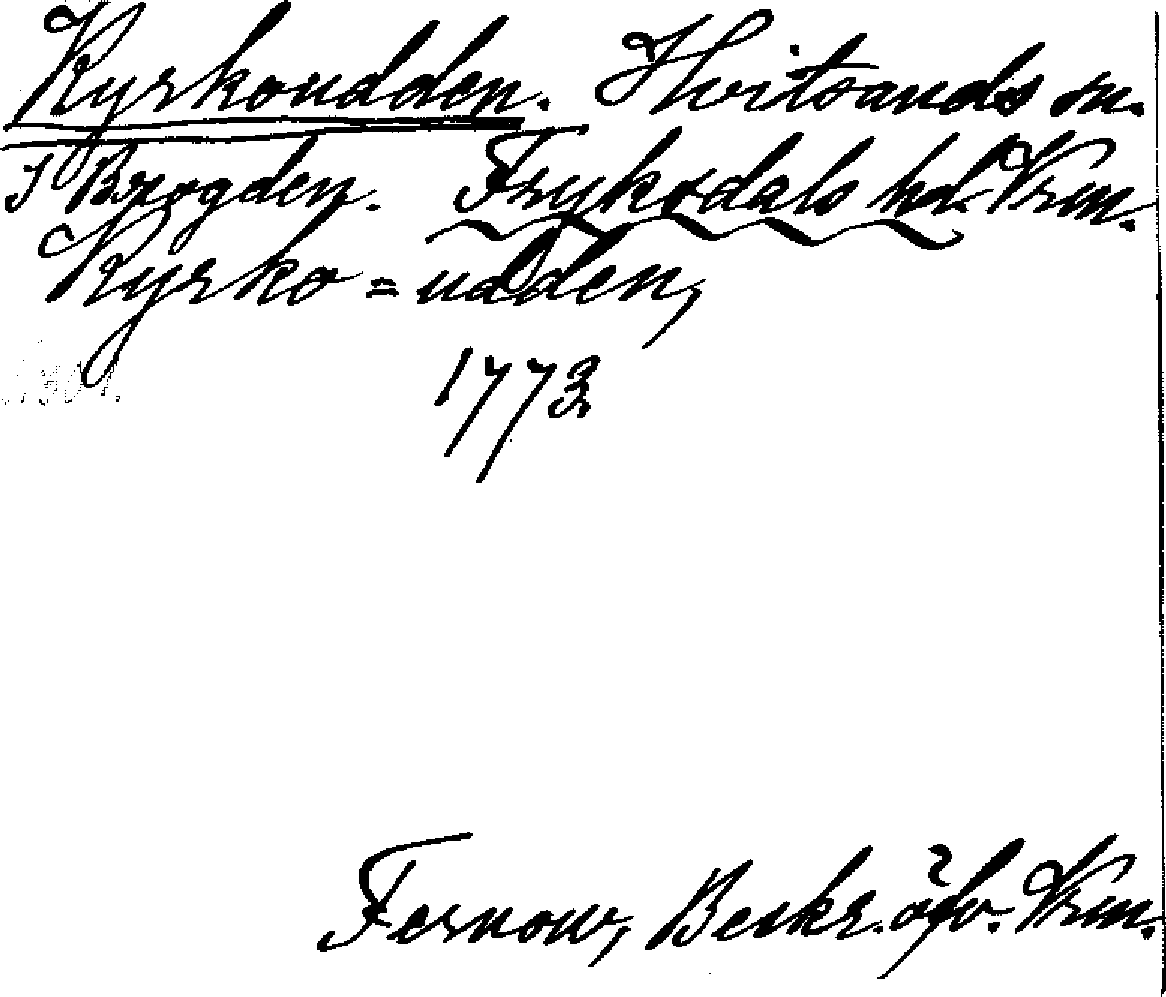 Kyrkoudden. Hvitsands sn.
I Brogden. Fryksdals hd. Vrm.
Kyrko=udden,
1773
Fernow, Beskr. öfv. Vrm.